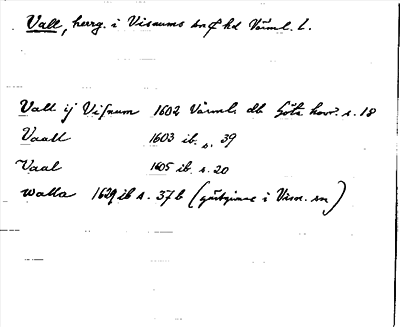 Vall, herrg. i Visnums sn o hd Värml. l.
Vall ij Visnum 1602 Värml. db Göta hovr. s. 18
Vaall 1603 ib. s. 39
Vaal 1605 ib. s. 20
Walla 1629 ib s. 37 b ( i Visn. sn)